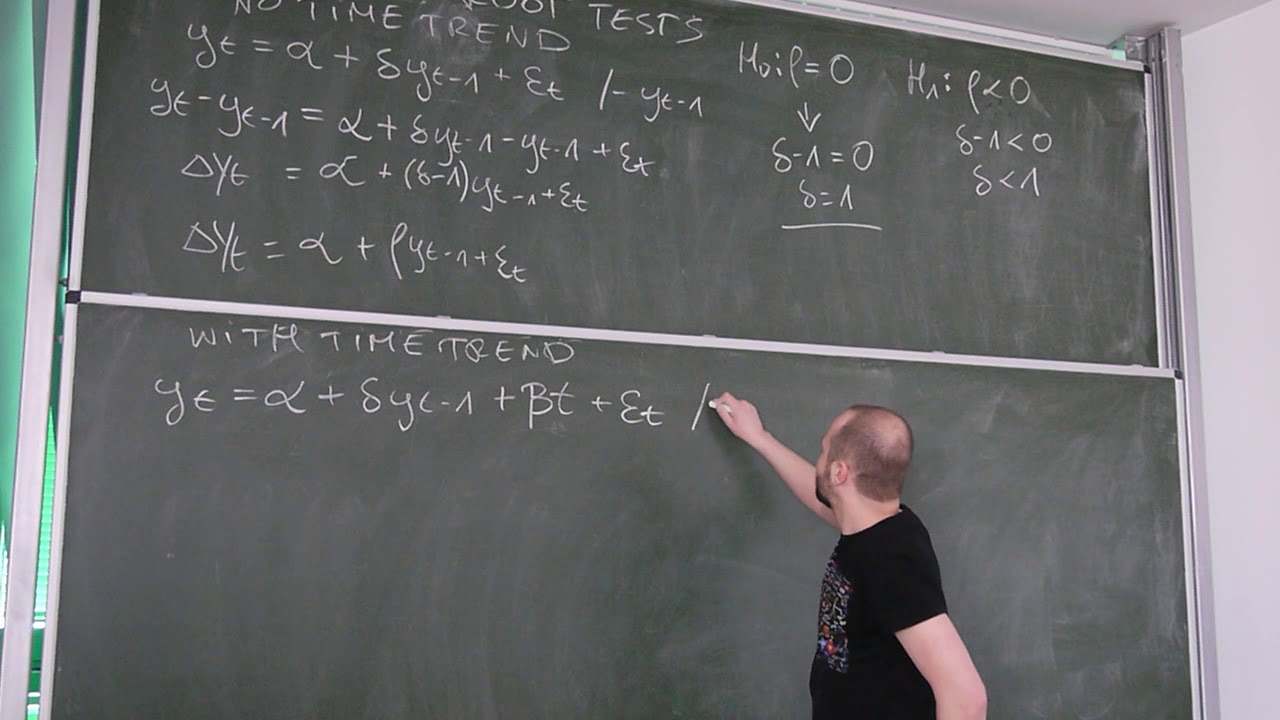 ROOT TESTS
NO TIME TREND
yt = α + δyt-1 + εt /- yt-1
yt - yt-1 = α + δyt-1 - yt-1 + εt
Δyt = α + (δ-1)yt-1 + εt
Δyt = α + ρyt-1 + εt
H0: ρ = 0
↓
δ-1 = 0
δ = 1
H1: ρ < 0
δ-1 < 0
δ < 1
WITH TIME TREND
yt = α + δyt-1 + βt + εt /